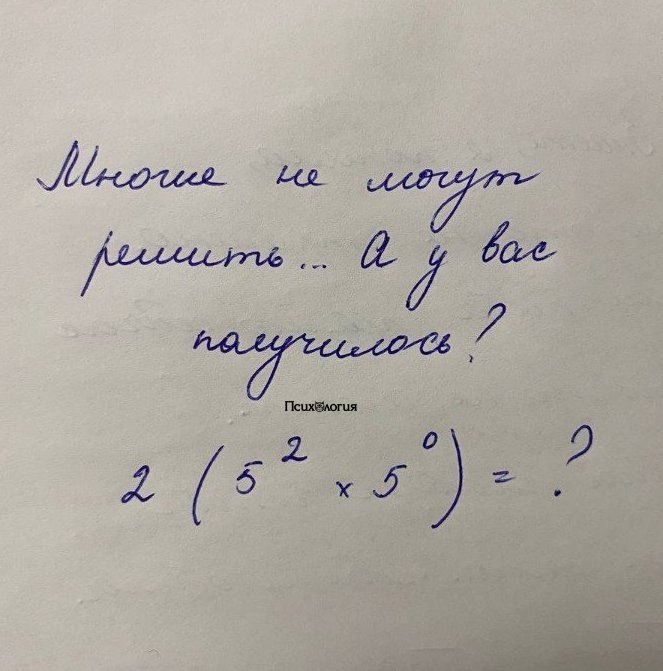 Многие не могут
решить... А у вас
получилось?
Психология
2 (5² × 5⁰) = ?